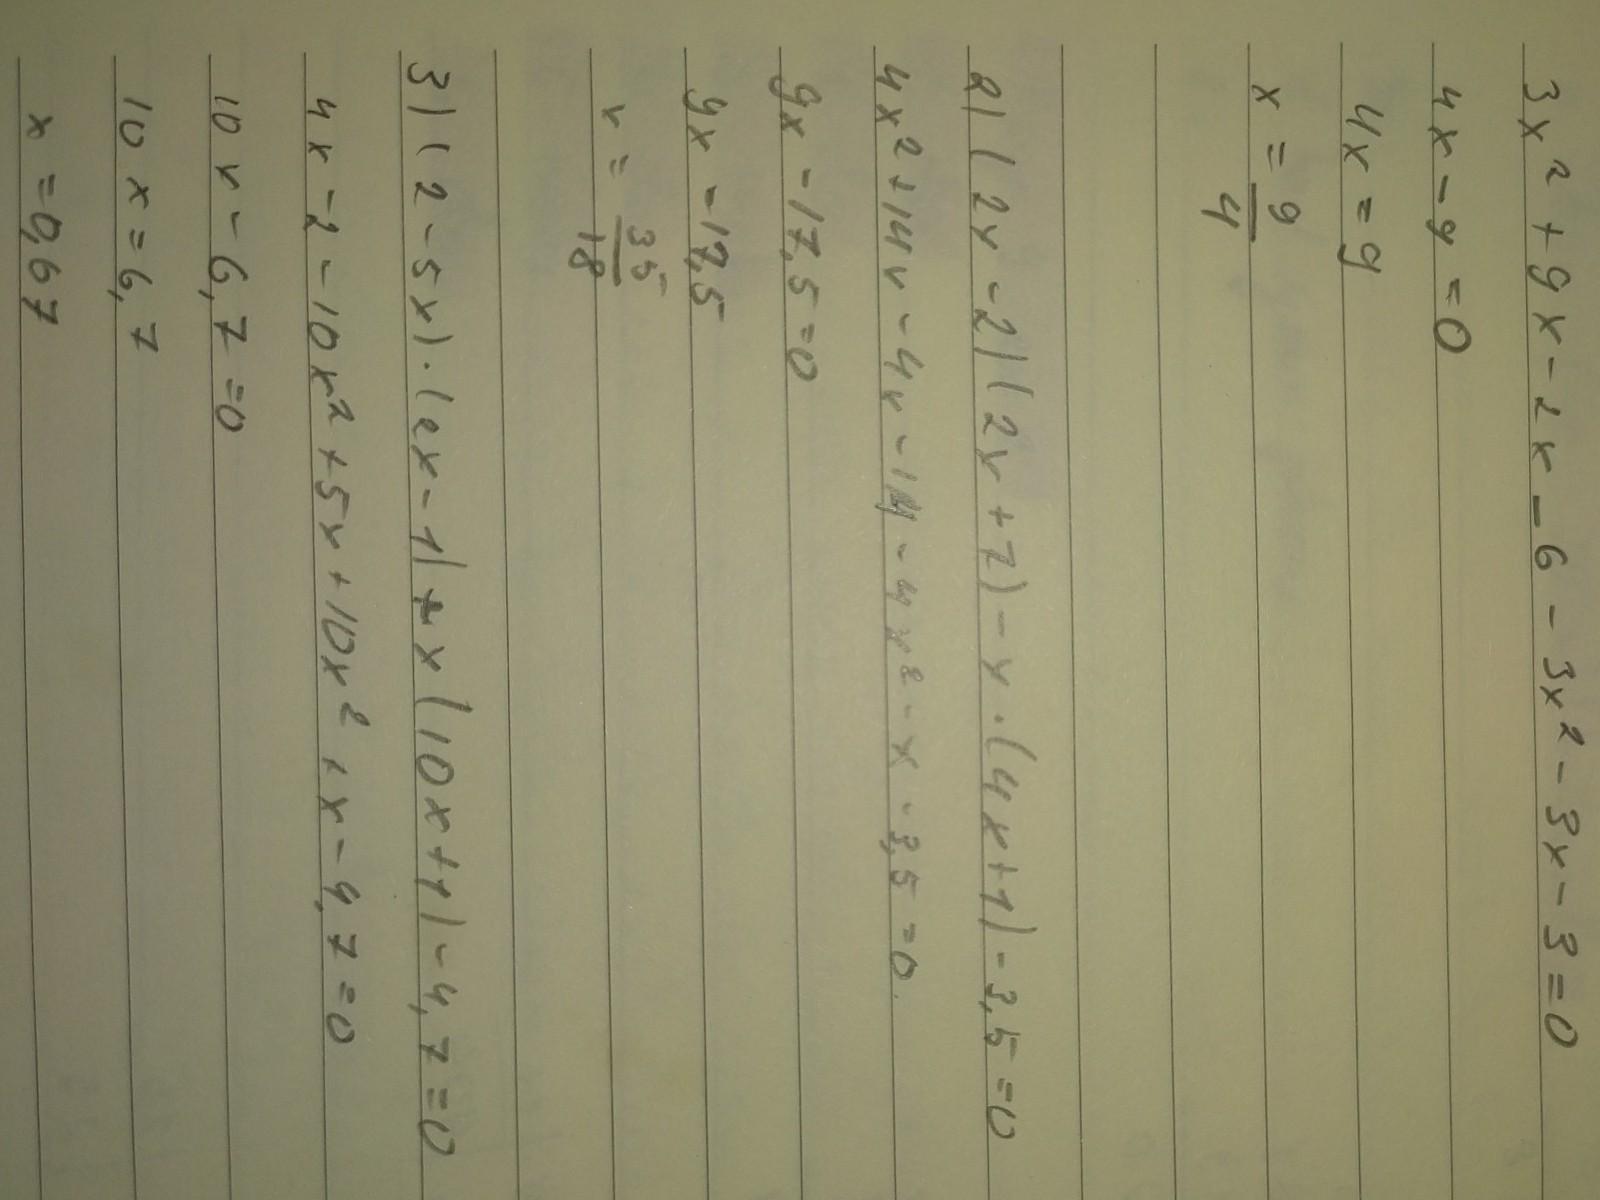 3x² + 9x - 2x - 6 - 3x² - 3x - 3 = 0
4x - 9 = 0
4x = 9
x = 9/4
2) (2x - 2) (2x + 7) - x · (4x + 1) - 3,5 = 0
4x² + 14x - 4x - 14 - 4x² - x - 3,5 = 0
9x - 17,5 = 0
9x - 17,5
x = 35/18
3) (2 - 5x) · (2x - 1) + x (10x + 1) - 4,7 = 0
4x - 2 - 10x² + 5x + 10x² + x - 4,7 = 0
10x - 6,7 = 0
10x = 6,7
x = 0,67